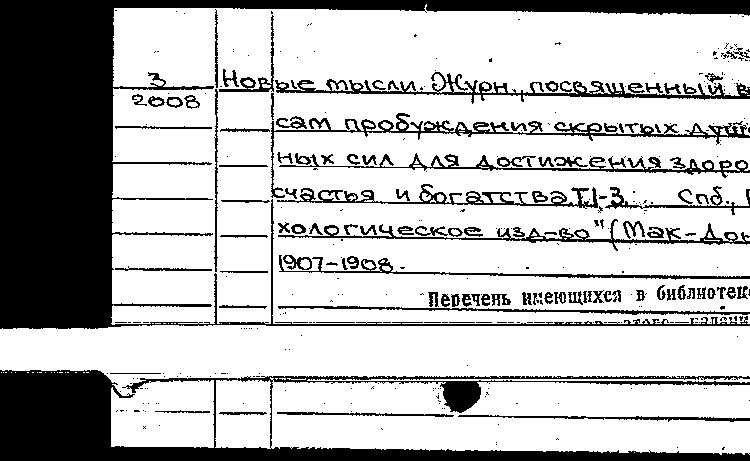 3
2008
Новые мысли. Журн., посвященный в
сам пробуждения скрытых душ
ных сил для достижения здоро
счастья и богатства. Т.1-3. Спб.,
хологическое изд-во "(Мак-Дон
1907-1908.
Перечень имеющихся в библиотеке
этого издани